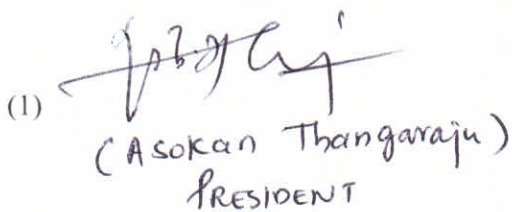 (1)
(Asokan Thangaraju)
PRESIDENT